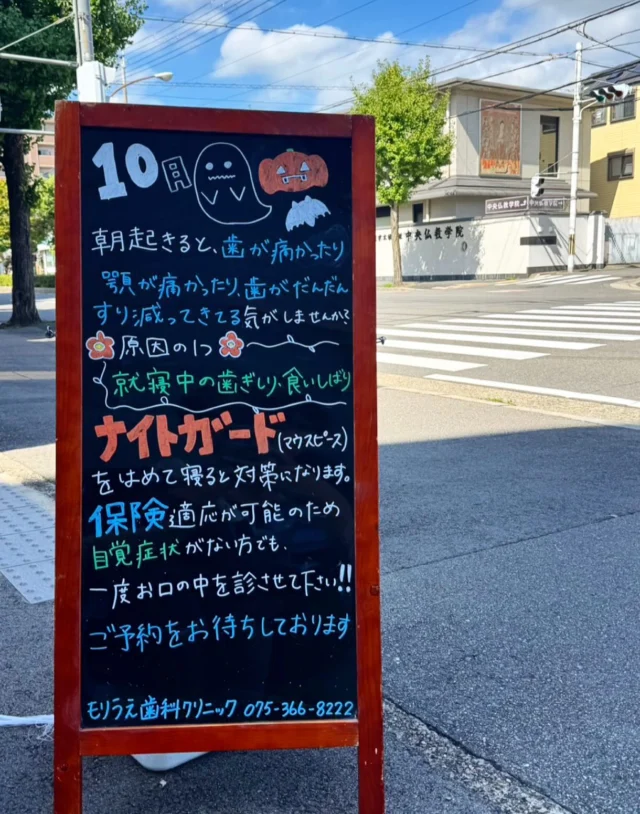 10月
朝起きると、歯が痛かったり
顎が痛かったり、歯がだんだん
すり減ってきてる気がしませんか?
原因の1つ
就寝中の歯ぎしり、食いしばり
ナイトガード(マウスピース)
をはめて寝ると対策になります。
保険適応が可能のため
自覚症状がない方でも、
一度お口の中を診させて下さい!!
ご予約をお待ちしております
モリうえ歯科クリニック 075-366-8222
中央仏教学院
中央仏教学院